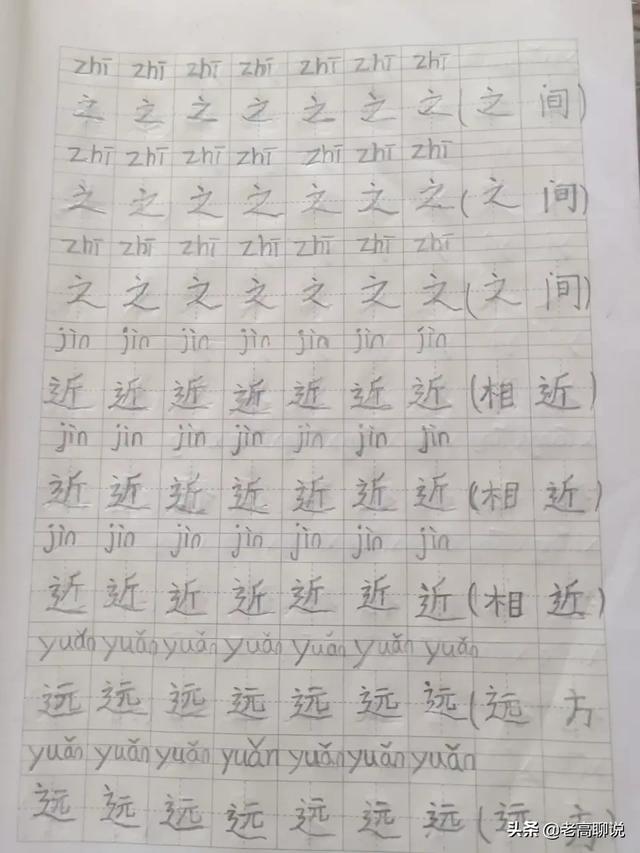 zhī zhī zhī zhī zhī zhī zhī
之 之 之 之 之 之 之 (之 间)
zhī zhī zhī zhī zhī zhī zhī
之 之 之 之 之 之 之 (之 间)
zhī zhī zhī zhī zhī zhī zhī
之 之 之 之 之 之 之 (之 间)
jìn jìn jìn jìn jìn jìn jìn
近 近 近 近 近 近 近 (相 近)
jìn jìn jìn jìn jìn jìn jìn
近 近 近 近 近 近 近 (相 近)
jìn jìn jìn jìn jìn jìn jìn
近 近 近 近 近 近 近 (相 近)
yuǎn yuǎn yuǎn yuǎn yuǎn yuǎn yuǎn
远 远 远 远 远 远 远 (远 方
yuǎn yuǎn yuǎn yuǎn yuǎn yuǎn yuǎn
远 远 远 远 远 远 远 (远 方)
头条 @老高聊说